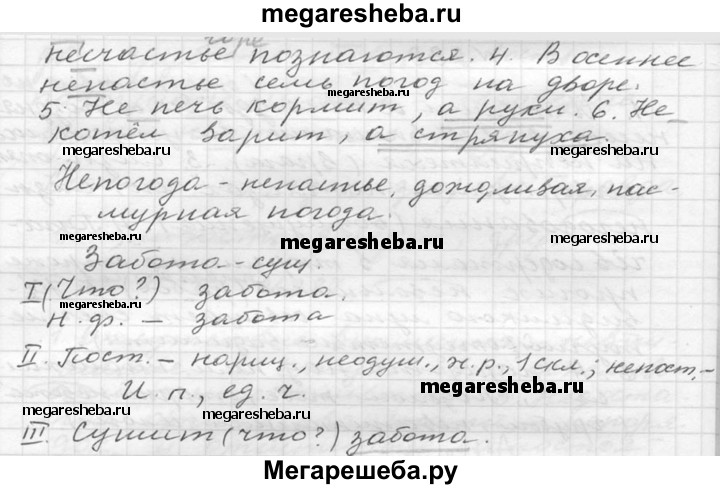 megaresheba.ru
горе
несчастье познаются. 4. В осеннее
ненастье семь погод на дворе.
5. Не печь кормит, а руки. 6. Не
котёл варит, а стряпуха.
megaresheba.ru
megaresheba.ru
megaresheba.ru
Непогода - ненастье, дождливая, пас-
мурная погода.
megaresheba.ru
megaresheba.ru
Забота - сущ.
megaresheba.ru
I (Что?) забота.
н. ф. – забота
II. Пост. – нариц., неодуш., ж. р., 1 скл.; непост. –
И. п., ед. ч.
megaresheba.ru
megaresheba.ru
megaresheba.ru
III. Сушит (что?) забота.
Мегарешеба.ру